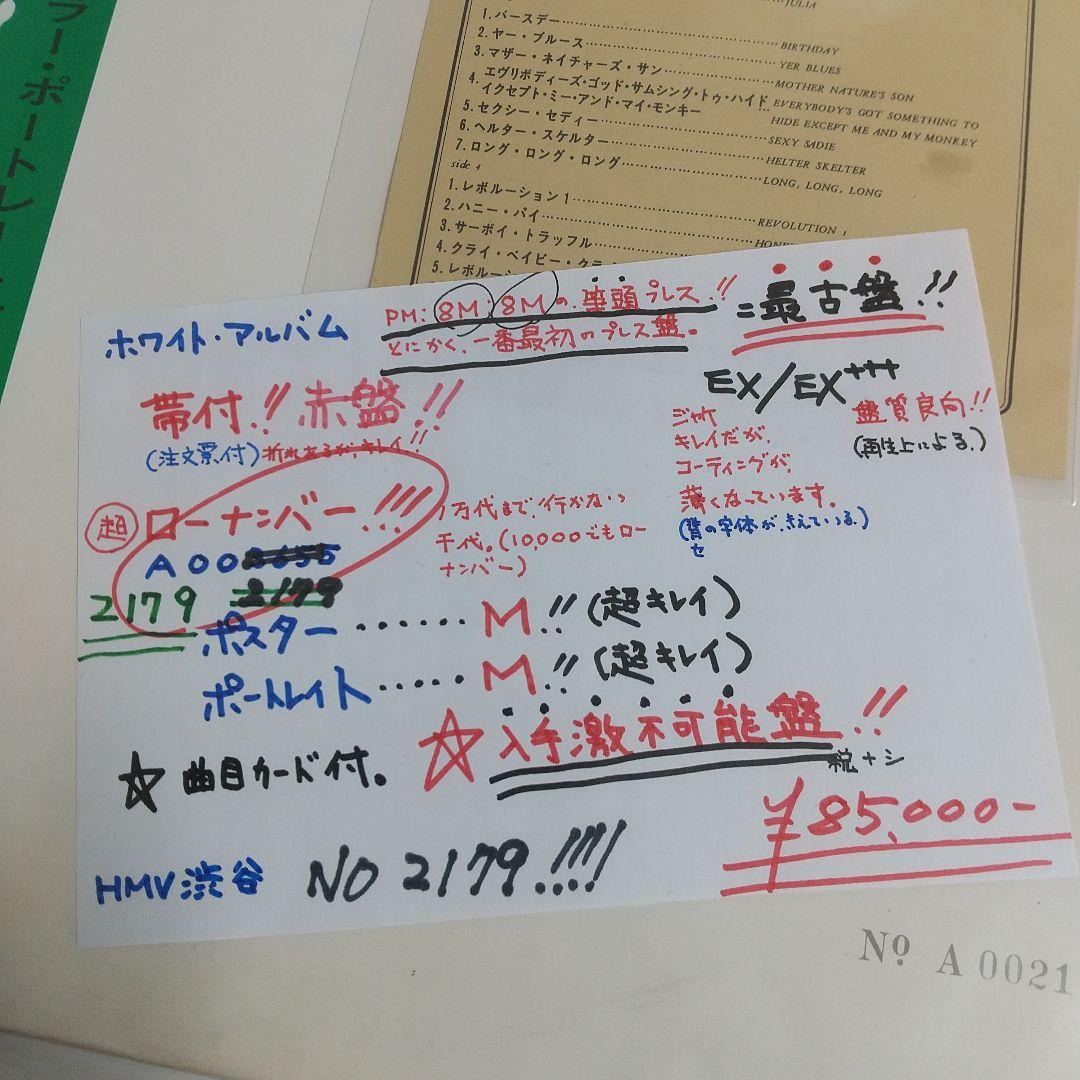 フー・ポートレー
JULIA
1.バースデー BIRTHDAY
2.ヤー・ブルース YER BLUES
3.マザー・ネイチャーズ・サン MOTHER NATURE'S SON
4.エヴリボディーズ・ゴッド・サムシング・トゥ・ハイド
イクセプト・ミー・アンド・マイ・モンキー EVERYBODY'S GOT SOMETHING TO
HIDE EXCEPT ME AND MY MONKEY
5.セクシー・セディー SEXY SADIE
6.ヘルター・スケルター HELTER SKELTER
7.ロング・ロング・ロング LONG, LONG, LONG
side 4
1.レボルーション1 REVOLUTION 1
2.ハニー・パイ HONE
3.サーボイ・トラッフル
4.クライ・ベイビー・クラ
5.レボルーシ
ホワイト・アルバム
PM:8M:8Mの筆頭プレス!!
とにかく、一番最初のプレス盤。
=最古盤!!
帯付!!赤盤!!
(注文票付)折れあるが、キレイ!!
EX/EX+++
ジャケ
キレイだが、
コーティングが、
薄くなっています。
(背の字体が、きえている。)
セ
盤質良向!!
(再生上による。)
超 ローナンバー!!!
A00
2179 2179
1万代まで行かない
千代。(10,000でもロー
ナンバー)
ポスター・・・・・・M!!(超キレイ)
ポートレイト・・・・・M!!(超キレイ)
☆入手激不可能盤!!
☆曲目カード付。
税+シ
¥85,000-
HMV渋谷 NO 2179!!!!
No A 0021